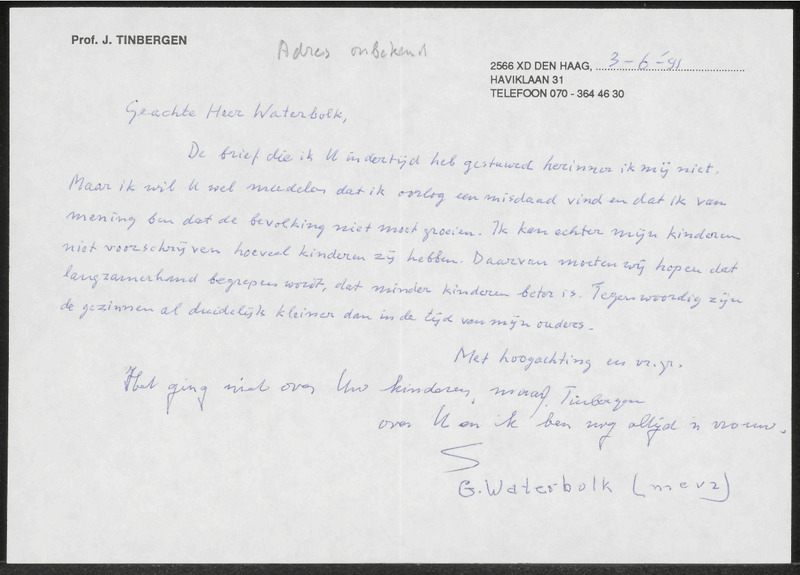 Prof. J. TINBERGEN
Adres onbekend
2566 XD DEN HAAG, 3-6-'91
HAVIKLAAN 31
TELEFOON 070 - 364 46 30
Geachte Heer Waterbolk,
De brief die ik U indertijd heb gestuurd herinner ik mij niet.
Maar ik wil U wel meedelen dat ik oorlog een misdaad vind en dat ik van
mening ben dat de bevolking niet moet groeien. Ik kan echter mijn kinderen
niet voorschrijven hoeveel kinderen zij hebben. Daarvan moeten wij hopen dat
langzamerhand begrepen wordt, dat minder kinderen beter is. Tegenwoordig zijn
de gezinnen al duidelijk kleiner dan in de tijd van mijn ouders.
Met hoogachting en vr. gr.
J. Tinbergen
Het ging niet over Uw kinderen, maar
over U en ik ben nog altijd 'n vrouw.
G. Waterbolk (mevr)